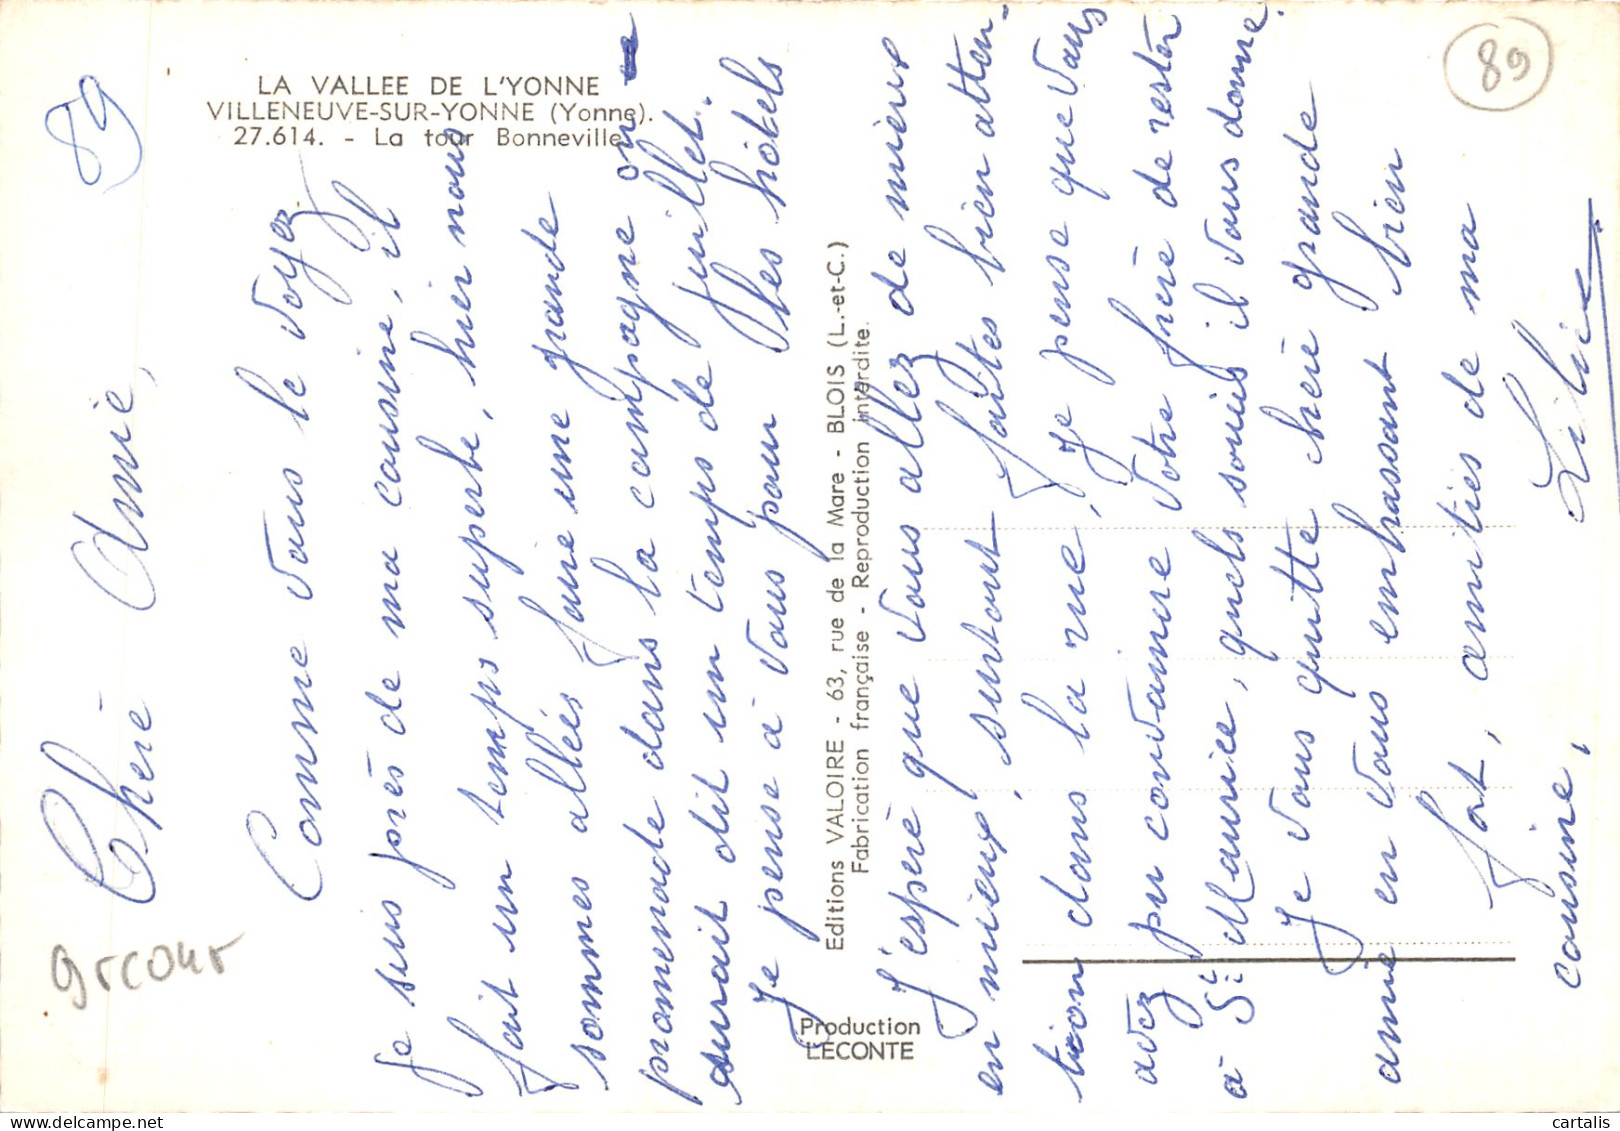 LA VALLEE DE L'YONNE
VILLENEUVE-SUR-YONNE (Yonne).
27.614. - La tour Bonneville
89
89
grcour
Chère Amie,
Comme vous le voyez
je suis près de ma cousine, il
fait un temps superbe, hier nous
sommes allées faire une grande
promenade dans la campagne on
aurait dit un temps de juillet.
Je pense à vous pour les hôtels
J'espère que vous allez de mieux
en mieux, surtout faites bien atten-
tion dans la rue, je pense que vous
avez pu convaincre votre frère de rester
à Ste Maurice, quels soucis il vous donne.
Je vous quitte chère grande
amie en vous embrassant bien
fort, amitiés de ma
cousine,
Lilie
Editions VALOIRE - 63, rue de la Mare - BLOIS (L.-et-C.)
Fabrication française - Reproduction interdite.
Production
LECONTE
cartalis
www.delcampe.net